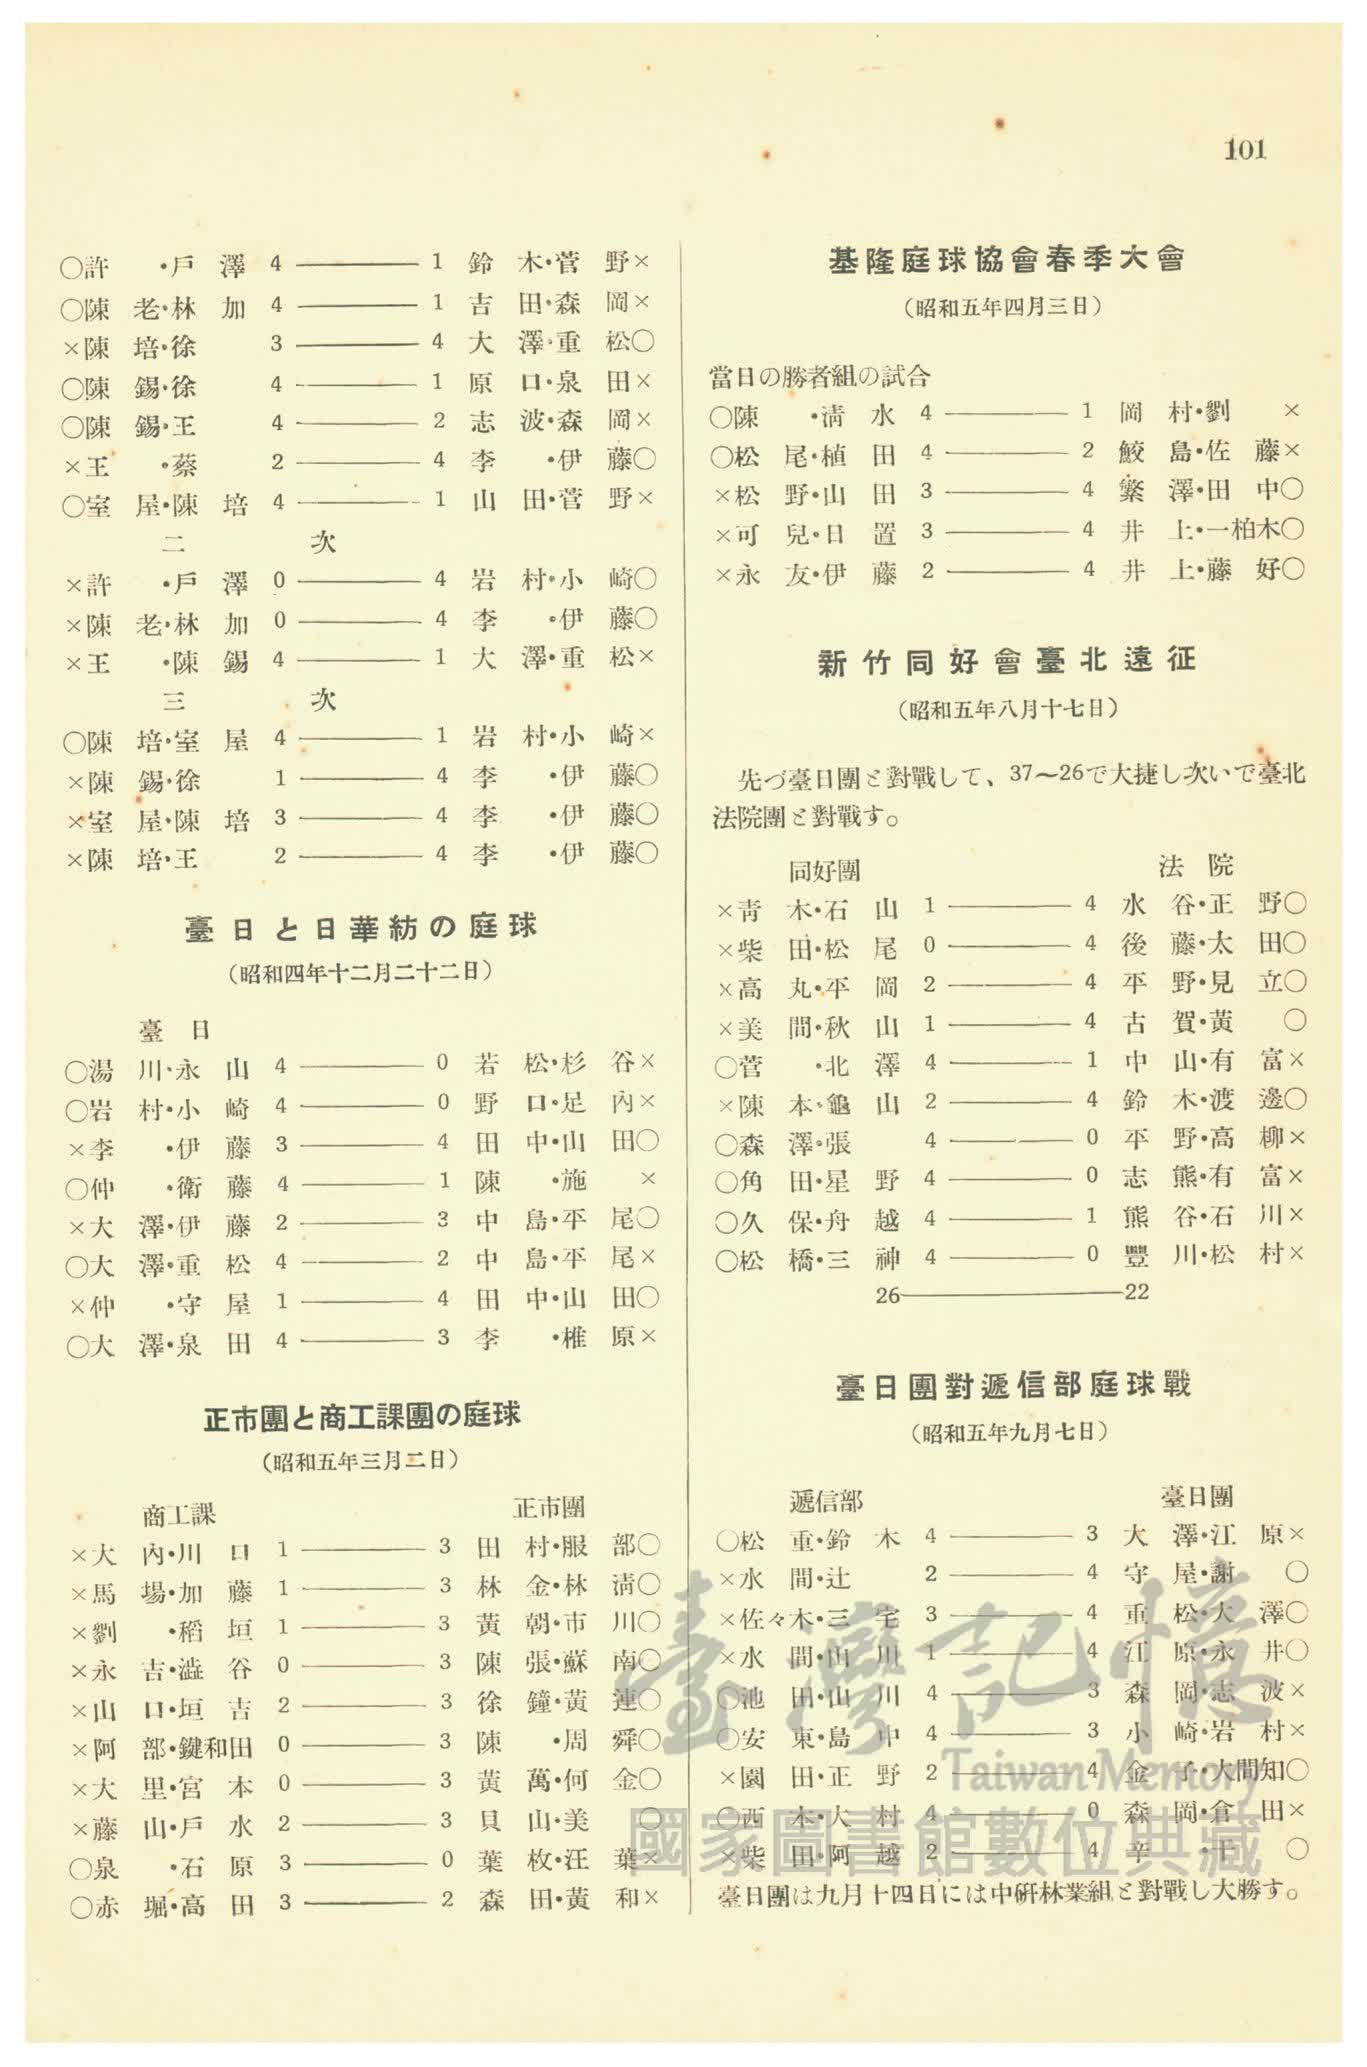 101
○許・戶澤 4 ——— 1 鈴木・菅野×
○陳老・林加 4 ——— 1 吉田・森岡×
×陳培・徐 3 ——— 4 大澤・重松○
○陳錫・徐 4 ——— 1 原口・泉田×
○陳錫・王 4 ——— 2 志波・森岡×
×王・蔡 2 ——— 4 李・伊藤○
○室屋・陳培 4 ——— 1 山田・菅野×
二次
×許・戶澤 0 ——— 4 岩村・小崎○
×陳老・林加 0 ——— 4 李・伊藤○
×王・陳錫 4 ——— 1 大澤・重松×
三次
○陳培・室屋 4 ——— 1 岩村・小崎×
×陳錫・徐 1 ——— 4 李・伊藤○
×室屋・陳培 3 ——— 4 李・伊藤○
×陳培・王 2 ——— 4 李・伊藤○
臺日と日華紡の庭球
（昭和四年十二月二十二日）
臺日
○湯川・永山 4 ——— 0 若松・杉谷×
○岩村・小崎 4 ——— 0 野口・足內×
×李・伊藤 3 ——— 4 田中・山田○
○仲・衛藤 4 ——— 1 陳・施×
×大澤・伊藤 2 ——— 3 中島・平尾○
○大澤・重松 4 ——— 2 中島・平尾×
×仲・守屋 1 ——— 4 田中・山田○
○大澤・泉田 4 ——— 3 李・椎原×
正市團と商工課團の庭球
（昭和五年三月二日）
商工課 正市團
×大內・川口 1 ——— 3 田村・服部○
×馬場・加藤 1 ——— 3 林金・林淸○
×劉・稻垣 1 ——— 3 黃朝・市川○
×永吉・澁谷 0 ——— 3 陳張・蘇南○
×山口・垣吉 2 ——— 3 徐鐘・黃連○
×阿部・鍵和田 0 ——— 3 陳・周舜○
×大里・宮本 0 ——— 3 黃萬・何金○
×藤山・戶水 2 ——— 3 貝山・美○
○泉・石原 3 ——— 0 葉枚・汪葉×
○赤堀・高田 3 ——— 2 森田・黃和×
基隆庭球協會春季大會
（昭和五年四月三日）
當日の勝者組の試合
○陳・淸水 4 ——— 1 岡村・劉×
○松尾・植田 4 ——— 2 鮫島・佐藤×
×松野・山田 3 ——— 4 繁澤・田中○
×可兒・日置 3 ——— 4 井上・一柏木○
×永友・伊藤 2 ——— 4 井上・藤好○
新竹同好會臺北遠征
（昭和五年八月十七日）
先づ臺日團と對戰して、37〜26で大捷し次いで臺北
法院團と對戰す。
同好團 法院
×靑木・石山 1 ——— 4 水谷・正野○
×柴田・松尾 0 ——— 4 後藤・太田○
×高丸・平岡 2 ——— 4 平野・見立○
×美間・秋山 1 ——— 4 古賀・黃○
○菅・北澤 4 ——— 1 中山・有富×
×陳本・龜山 2 ——— 4 鈴木・渡邊○
○森澤・張 4 ——— 0 平野・高柳×
○角田・星野 4 ——— 0 志熊・有富×
○久保・舟越 4 ——— 1 熊谷・石川×
○松橋・三神 4 ——— 0 豐川・松村×
26———22
臺日團對遞信部庭球戰
（昭和五年九月七日）
遞信部 臺日團
○松重・鈴木 4 ——— 3 大澤・江原×
×水間・辻 2 ——— 4 守屋・謝○
×佐々木・三宅 3 ——— 4 重松・大澤○
×水間・山川 1 ——— 4 江原・永井○
○池田・山川 4 ——— 3 森岡・志波×
○安東・島中 4 ——— 3 小崎・岩村×
×園田・正野 2 ——— 4 金子・大間知○
○西本・大村 4 ——— 0 森岡・倉田×
×柴田・阿越 2 ——— 4 辛・王○
臺日團は九月十四日には中硏林業組と對戰し大勝す。
臺灣記憶
Taiwan Memory
國家圖書館數位典藏